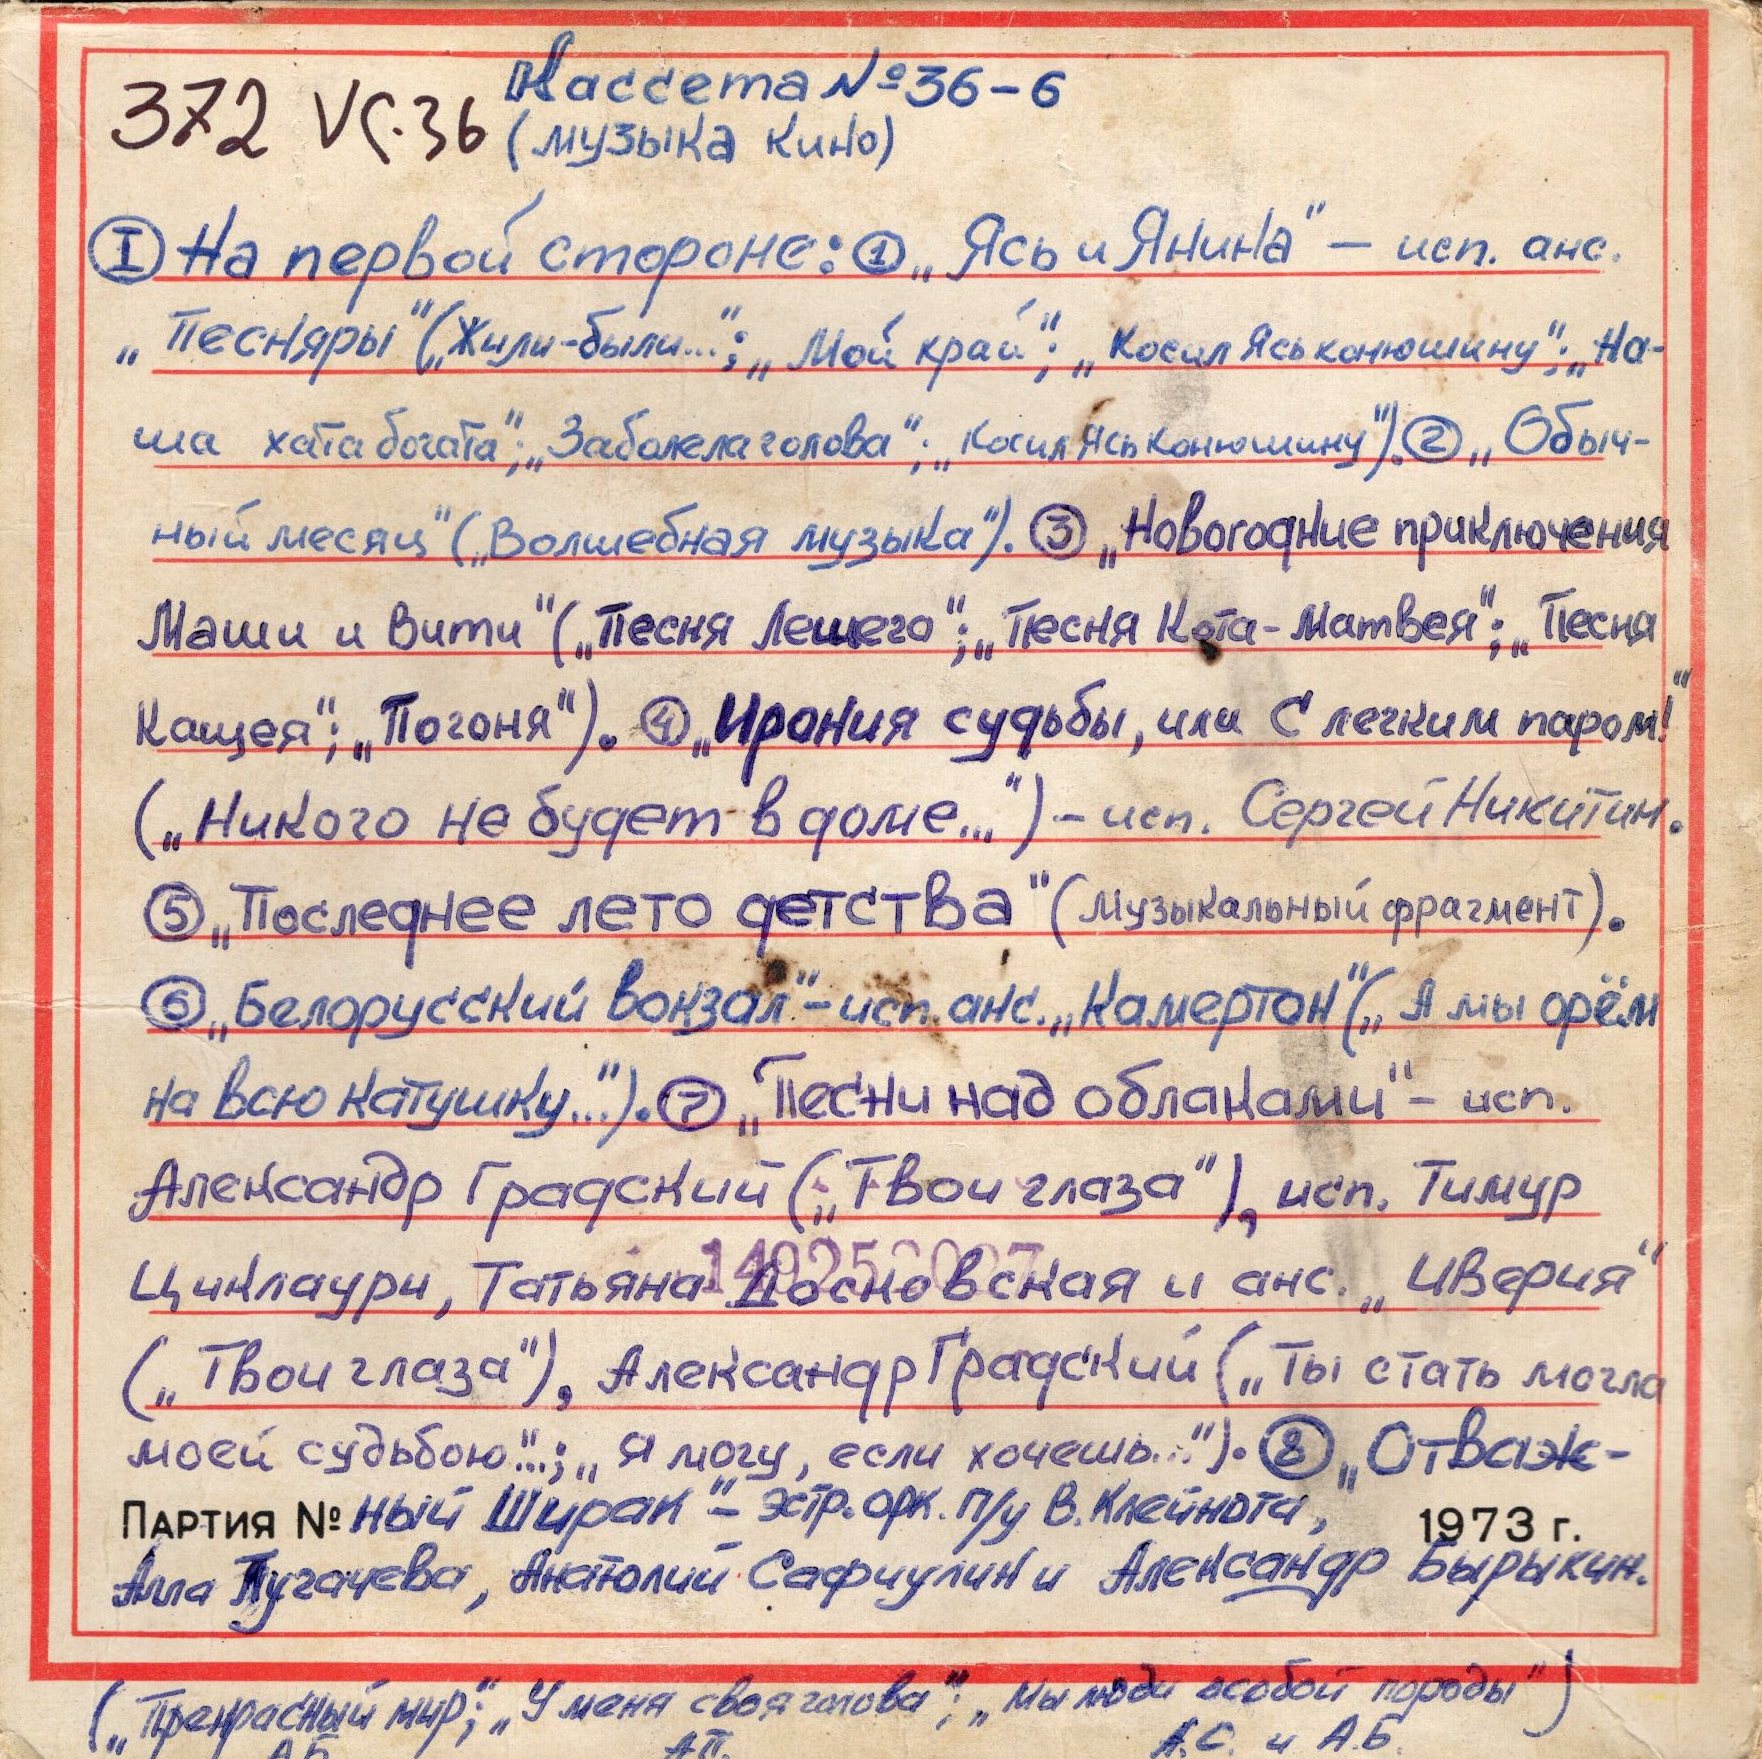 Кассета № 36-6
372 VC.36 (музыка кино)
I На первой стороне: 1 „Ясь и Янина" – исп. анс.
„Песняры" („Жили-были..."; „Мой край"; „Косил Ясь конюшину"; „На-
ша хата богата"; „Заболела голова"; „Косил Ясь конюшину"). 2 „Обыч-
ный месяц" („Волшебная музыка"). 3 „Новогодние приключения
Маши и Вити" („Песня Лешего"; „Песня Кота-Матвея"; „Песня
Кащея"; „Погоня"). 4 „Ирония судьбы, или С легким паром!"
(„Никого не будет в доме...") – исп. Сергей Никитин.
5 „Последнее лето детства" (музыкальный фрагмент).
6 „Белорусский вокзал" – исп. анс. „Камертон" („А мы орём
на всю катушку..."). 7 „Песни над облаками" – исп.
Александр Градский („Твои глаза"), исп. Тимур
Циклаури, Татьяна и анс. „Иверия"
(„Твои глаза"), Александр Градский („Ты стать могла
моей судьбою..."; „Я могу, если хочешь..."). 8 „Отваж-
Партия № ный Ширак" – эстр. орк. п/у В. Клейнота, 1973 г.
Алла Пугачева, Анатолий Сафиулин и Александр Бырыкин.
(„Прекрасный мир"; „У меня своя голова"; „Мы люди особой породы")
А.Б. А.П. А.С. и А.Б.